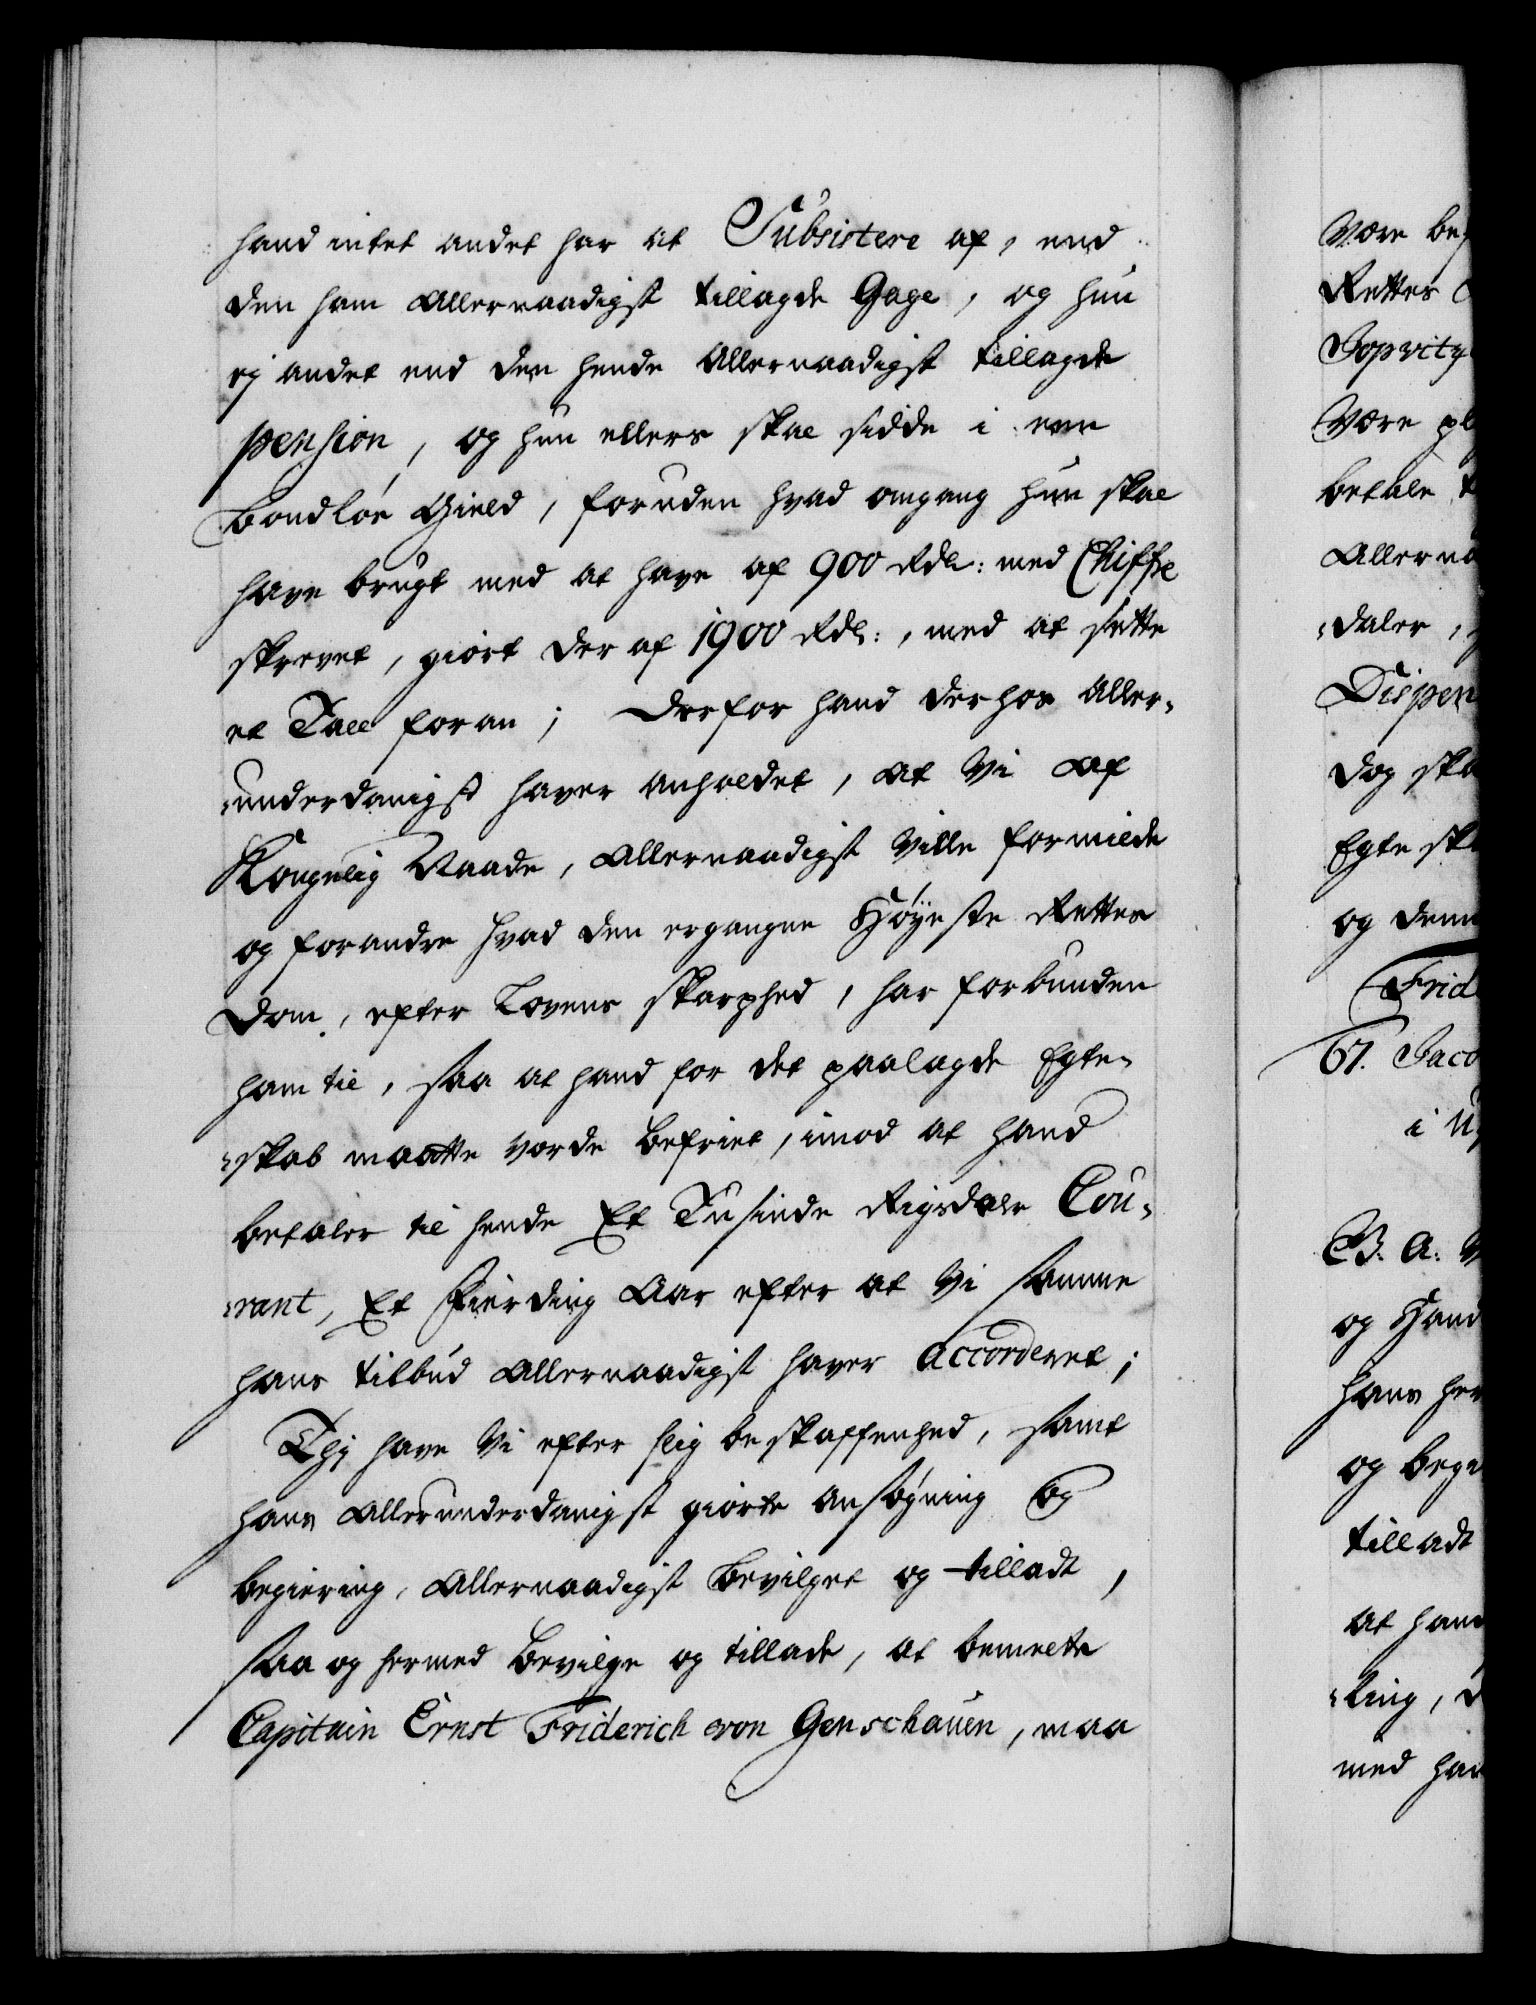 hand intet andet har at Subsistere af, end
den ham Allernaadigst tillagde Gage, og hun
ej andet end den hende Allernaadigst tillagde
pension, og hun ellers skal sidde i een
bondløs Gield, foruden hvad omgang hun skal
have brugt med at have af 900 Rdlr: med Chiffre
skrevet, giort der af 1900 Rdlr:, med at sette
et Tall foran; Derfor hand derhos Aller-
underdanigst haver anholdet, at Vi af
Kongelig Naade, Allernaadigst Ville formilde
og forandre hvad den ergangne Høyeste Rettes
Dom, efter Lovens skarphed, har forbunden
ham til, saa at hand for det paalagde Egte-
skab maatte vorde befriet, imod at hand
betaler til hende Et Tusinde Rigsdaler Cou-
rant, Et Fierding Aar efter at Vi samme
hans tilbud Allernaadigst haver accorderet;
Thj have Vi efter slig beskaffenhed, samt
hans Allerunderdanigst giorte ansøgning og
begiering, Allernaadigst bevilget og tilladt,
saa og hermed bevilge og tillade, at bemelte
Capitain Ernst Friderich von Genschauen, maa
Være be
Rettes
Være
betale
Allerna
daler,
Dispen
dog ska
Egte sk
og denn
Frid
67. Jaco
i U
B: A: V
og Hand
hans her
og begi
tilladt
at han
ling, d
med han